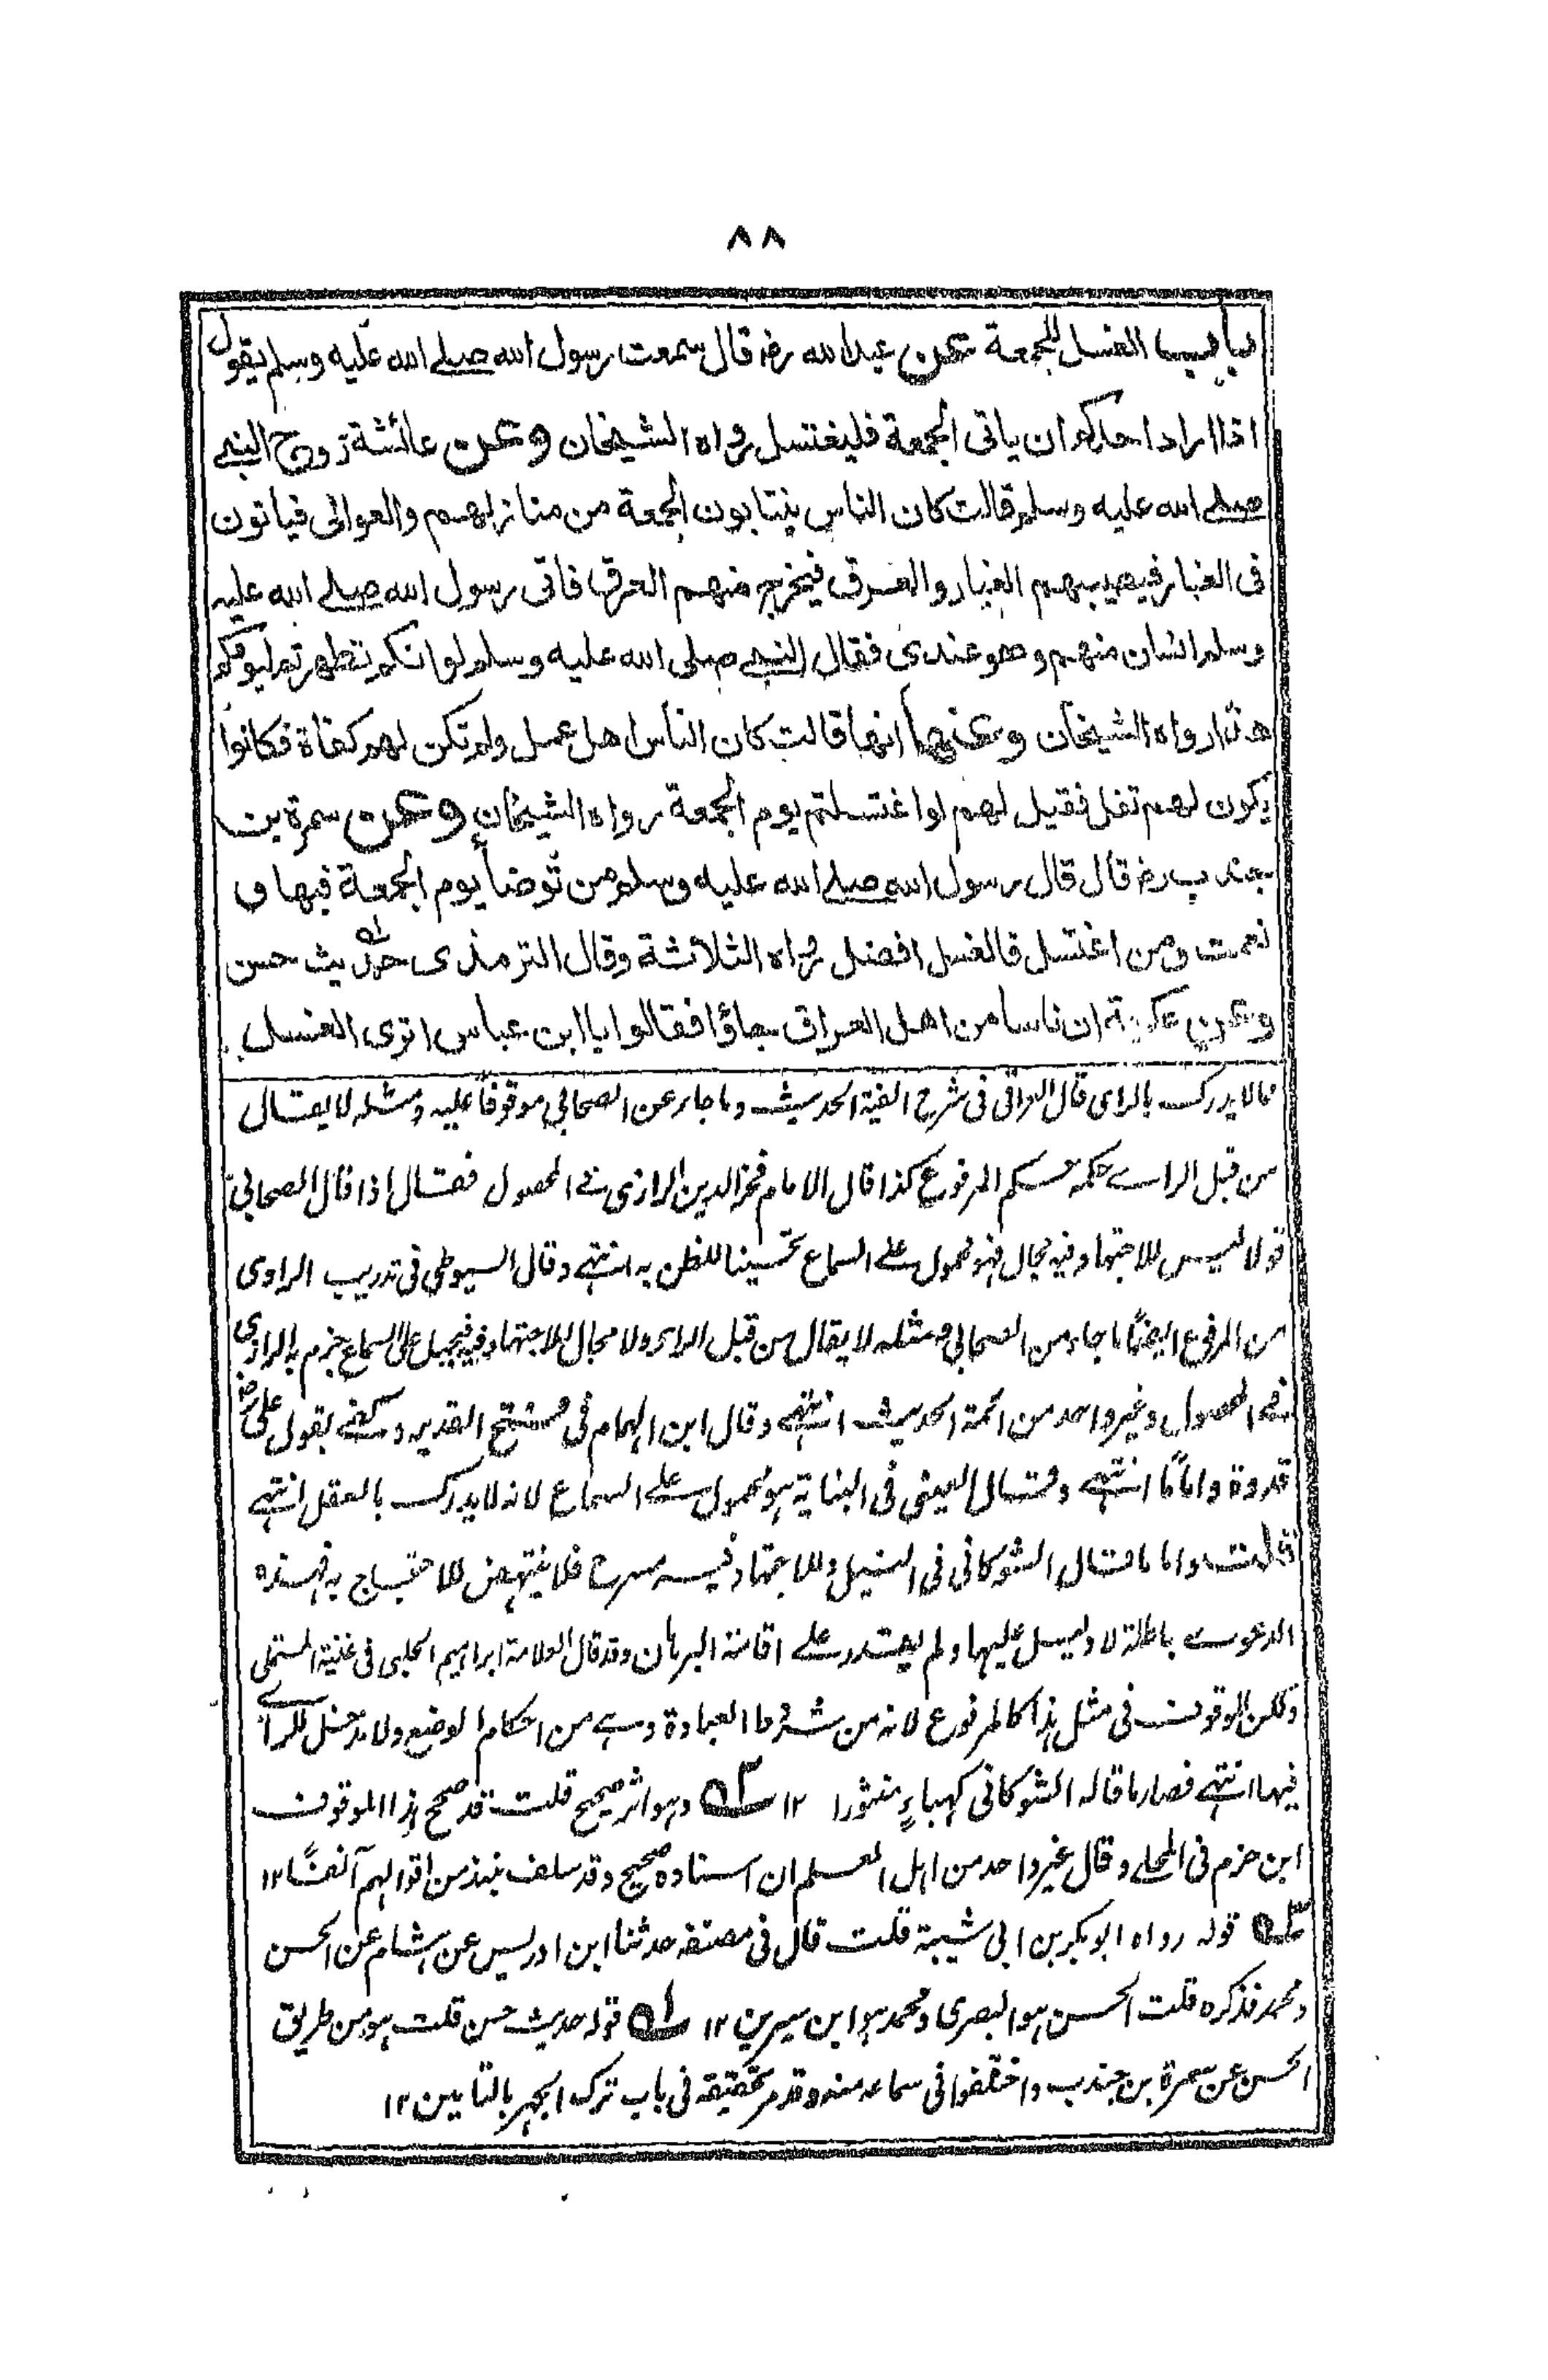 ٨٨
باب الغسل للجمعة عن عبدالله رض قال سمعت رسول الله صلے الله عليه وسلم يقول
اذا اراد احدكم ان ياتى الجمعة فليغتسل رواه الشيخان وعن عائشة زوج النبے
صلے الله عليه وسلم قالت كان الناس ينتابون الجمعة من منازلهم والعوالى فياتون
فى الغبار فيصيبهم الغبار والعرق فيخرج منهم العرق فاتى رسول الله صلے الله عليه
وسلم انسان منهم وهو عندى فقال النبے صلى الله عليه وسلم لو انكم تطهرتم ليومكم
هذا رواه الشيخان وعنها انها قالت كان الناس اهل عمل ولم تكن لهم كفاة فكانوا
يكون لهم تفل فقيل لهم لو اغتسلتم يوم الجمعة رواه الشيخان وعن سمرة بن
جندب رض قال قال رسول الله صلے الله عليه وسلم من توضأ يوم الجمعة فبها و
نعمت ومن اغتسل فالغسل افضل رواه الثلاثة وقال الترمذى حديث حسن
وعن عكرمة ان ناسا من اهل العراق جاؤا فقالوا يا ابن عباس اترى الغسل
مما لا يدرك بالراى قال العراقى فى شرح الفية الحديث وما جاء عن الصحابي موقوفا عليه ومثله لا يقال
من قبل الراے حكمه حكم المرفوع كذا قال الامام فخر الدين الرازى فے المحصول فقال اذا قال الصحابي
قولا ليس للاجتهاد فيه مجال فهو محمول علے السماع تحسينا للظن به انتهے وقال السيوطى فى تدريب الراوى
من المرفوع ايضًا ما جاء من الصحابي ومثله لا يقال من قبل الراى ولا مجال للاجتهاد فيه فيحمل على السماع جزم به الرازى
فے المحصول وغير واحد من ائمة الحديث انتهے وقال ابن الهمام فى فتح القدير وكفے بقول على رض
قدوة واماما انتهے وقال العينى فى البناية هو محمول علے السماع لانه لا يدرك بالعقل انتهے
قلت واما ما قال الشوكانى فى النيل وللاجتهاد فيه مسرح فلا ينتهض للاحتجاج به فهذه
الدعوے باطلة لا دليل عليها ولم يقدر علے اقامة البرهان وقد قال العلامة ابراهيم الحلبى فى غنية المستملى
ولكن الموقوف فى مثل هذا كالمرفوع لانه من شروط العبادة وهے من احكام الوضع ولا مدخل للراے
فيها انتهے فصار ما قاله الشوكانى كهباءٍ منثورا ١٢ سله وهو اثر صحيح قلت قد صحح هذا الموقوف
ابن حزم فى المحلے وقال غير واحد من اهل العلم ان اسناده صحيح وقد سلف نبذ من اقوالهم آنفًا ١٢
سله قوله رواه ابو بكر بن ابى شيبة قلت قال فى مصنفه حدثنا ابن ادريس عن هشام عن الحسن
ومحمد فذكره قلت الحسن هو البصرى ومحمد هو ابن سيرين ١٢ له قوله حديث حسن قلت هو من طريق
الحسن عن سمرة بن جندب واختلفوا فى سماعه منه وقد مر تحقيقه فى باب ترك الجهر بالتامين ١٢